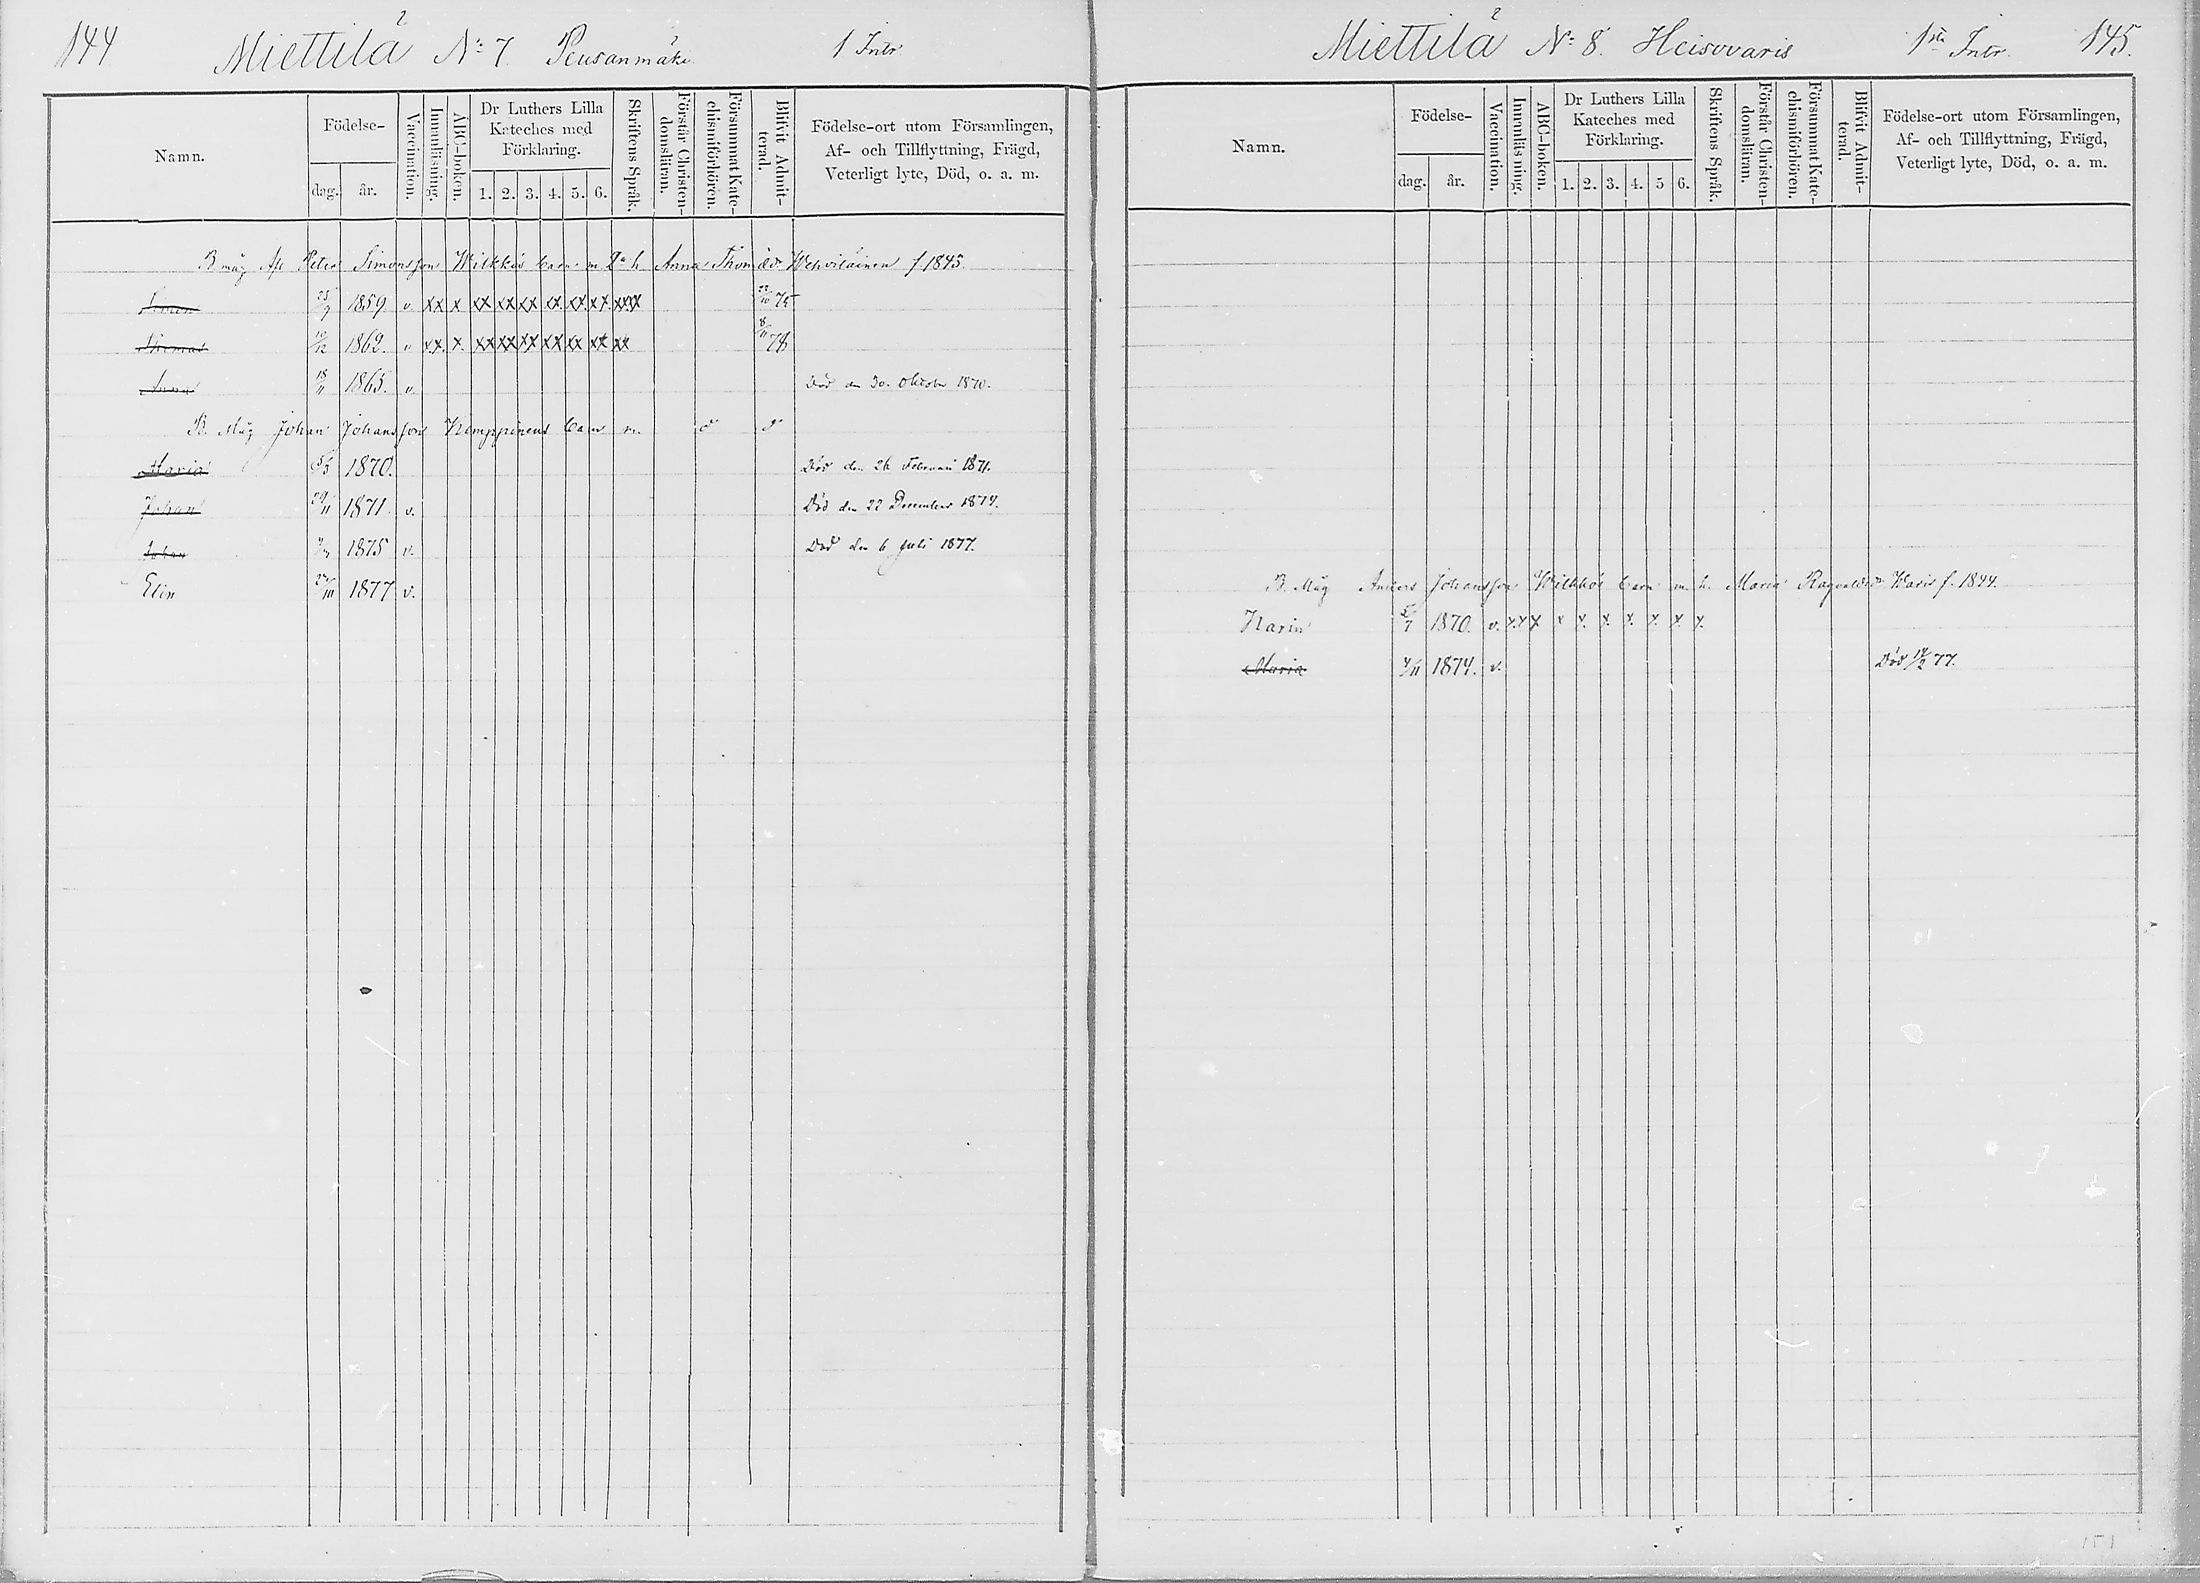 144 Miettilä No 7 Peusanmäki 1 Intr.
Namn.
Födelse-
dag. år.
Vaccination.
Innanläsning.
ABC-boken.
Dr Luthers Lilla
Kateches med
Förklaring.
1. 2. 3. 4. 5. 6.
Skriftens Språk.
Förstår Christen-
domsläran.
Försummat Kate-
chismiförhören.
Blifvit Admit-
terad.
Födelse-ort utom Församlingen,
Af- och Tillflyttning, Frägd,
Veterligt lyte, Död, o. a. m.
Petter Simonsson Wilkkis barn m. h. Anna Thom. dr Wehviläinen f. 1845.
Simon 25/7 1859 v. xx x xx xx xx xx xx xx xxxx 22/10 75
Thomas 10/12 1862. v xx. x. xx xx xx xx xx xx xx 8/11 78
Anna 18/11 1865. v. Död den 30. Oktober 1870.
B. Mäg Johan Johansson Kemppinens barn m.
Maria 1870. Död den 26 Februari 1871.
Johan 29/11 1871 v. Död den 22 December 1874.
Johan 1875 v. Död den 6 Juli 1877.
Elin 1877 v.
Miettilä No 8. Heisovaris 1sta Intr. 145.
Namn.
Födelse-
dag. år.
Vaccination.
Innanläsning.
ABC-boken.
Dr Luthers Lilla
Kateches med
Förklaring.
1. 2. 3. 4. 5 6.
Skriftens Språk.
Förstår Christen-
domsläran.
Försummat Kate-
chismiförhören.
Blifvit Admit-
terad.
Födelse-ort utom Församlingen,
Af- och Tillflyttning, Frägd,
Veterligt lyte, Död, o. a. m.
B. Mäg Anders Johansson Wilkkis barn m. h. Maria Ragvaldsdr Waris f. 1844.
Karin 5/7 1870. v. x.x x x x. x. x. x. x. x.
Maria 4/11 1874. v. Död 77.
151